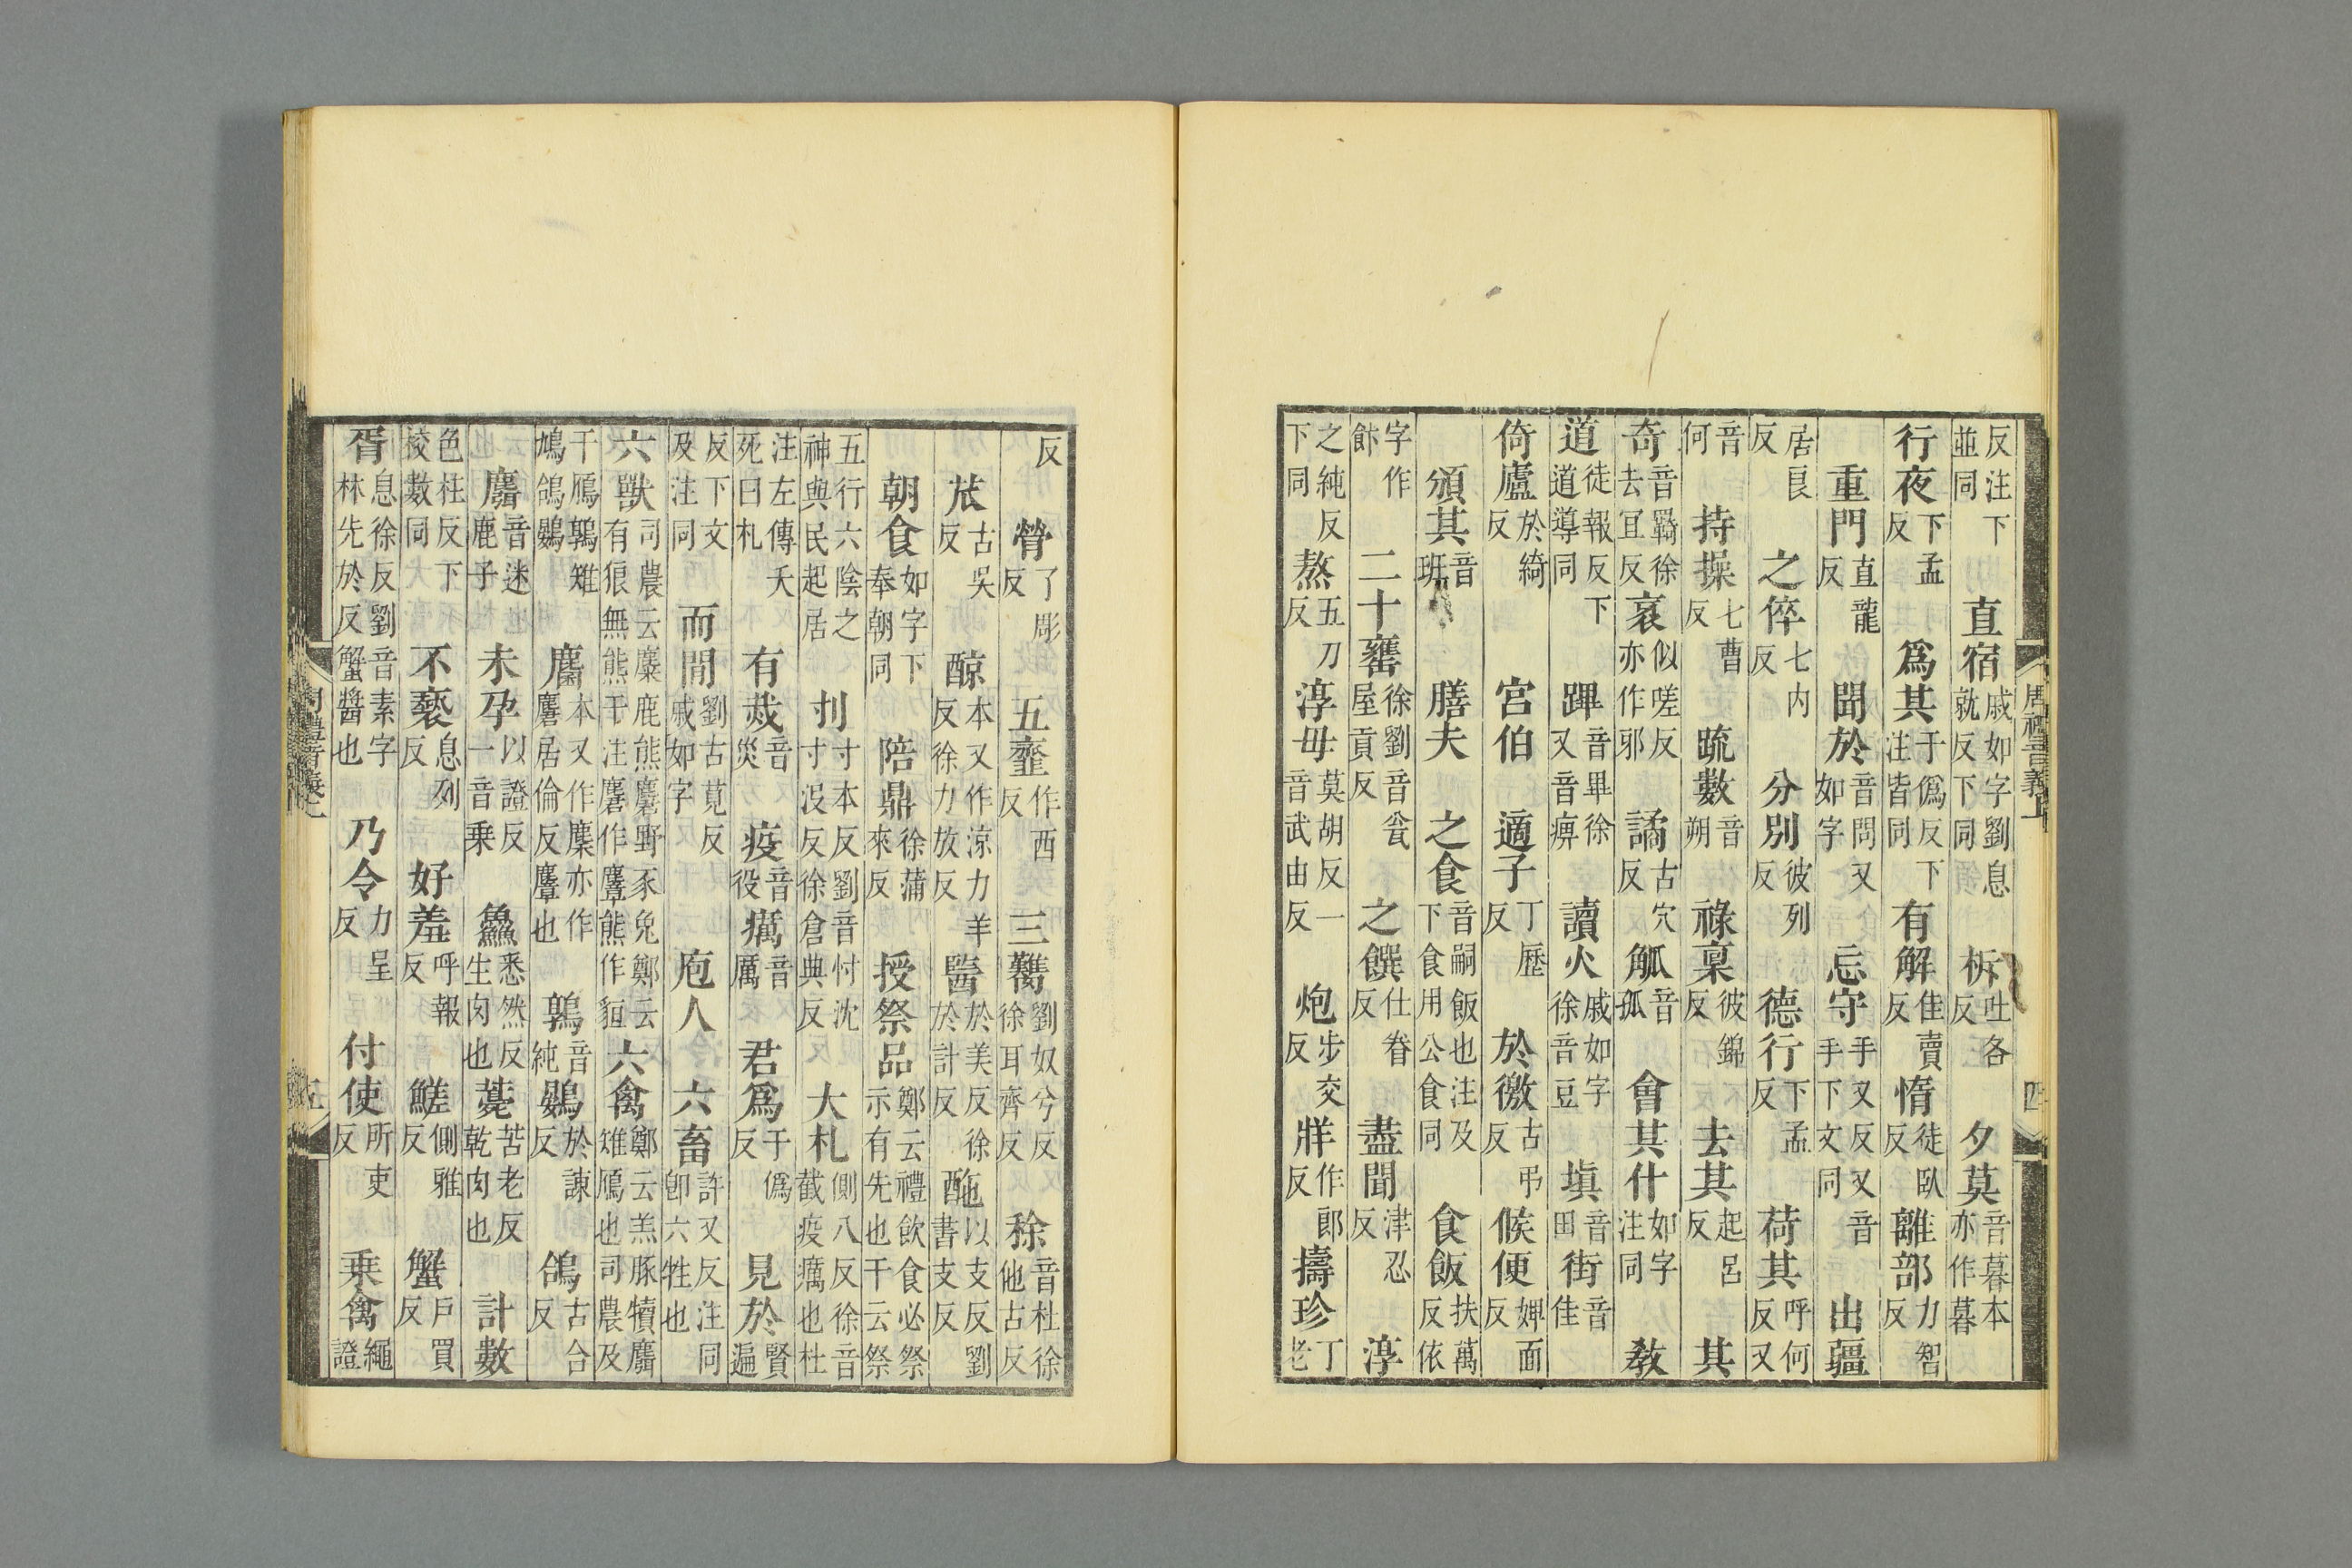 反注下並同　直宿戚如字劉息就反下同　柝吐各反　夕莫音暮本亦作暮
行夜下孟反　爲其于僞反下注皆同　有解佳賣反　惰徒臥反　離部力智反
重門直龍反　聞於音問又如字　忘守手又反又音手下文同　出疆
居良反　之倅七内反　分別彼列反　德行下孟反　荷其呼何反又
音何　持操七曹反　疏數音朔　祿稟彼錦反　去其起呂反　其
奇音羇徐去宜反　衺似嗟反亦作邪　譎古穴反　觚音孤　會其什如字注同　教
道徒報反下道導同　蹕音畢徐又音痹　讀火戚如字徐音豆　填音田　街音佳
倚廬於綺反　宮伯　適子丁歷反　於徼古弔反　候便婢面反
頒其音班　膳夫　之食音嗣飯也注及下食用公食同　食飯扶萬反依
字作飰　二十罋徐劉音瓮屋貢反　之饌仕眷反　盡聞津忍反　淳
之純反下同　熬五刀反　淳毋莫胡反一音武由反　炮步交反　牂作郎反　擣珍丁老
周禮音義上　四
反　膋了彫反　五齏作西反　三臡劉奴兮反徐耳齊反　稌音杜徐他古反
苽古吳反　醇本又作涼力羊反徐力放反　醫於美反徐於計反　酏以支反劉書支反
朝食如字下奉朝同　陪鼎徐蒲來反　授祭品鄭云禮飲食必祭示有先也干云祭
五行六陰之神與民起居　刌寸本反劉音忖沈寸沒反徐倉典反　大札側八反徐音截疫癘也杜
注左傳夭死曰札　有烖音災　疫音役　癘音厲　君爲于僞反　見於賢遍
反下文及注同　而閒劉古莧反戚如字　庖人　六畜許又反注同卽六牲也
六獸司農云麋鹿熊麕野豕兔鄭云有狼無熊干注麕作麞熊作貆　六禽鄭云羔豚犢麛雉鴈也司農及
干鴈鶉雉鳩鴿鷃　麕本又作麇亦作麏居倫反麞也　鶉音純　鷃於諫反　鴿古合反
麛音迷鹿子　未孕以證反一音乗　鱻悉然反生肉也　薧苦老反乾肉也　計數
色柱反下校數同　不褻息列反　好羞呼報反　鮺側雅反　蟹戶買反
胥息徐反劉音素字林先於反蟹醬也　乃令力呈反　付使所吏反　乗禽繩證
五